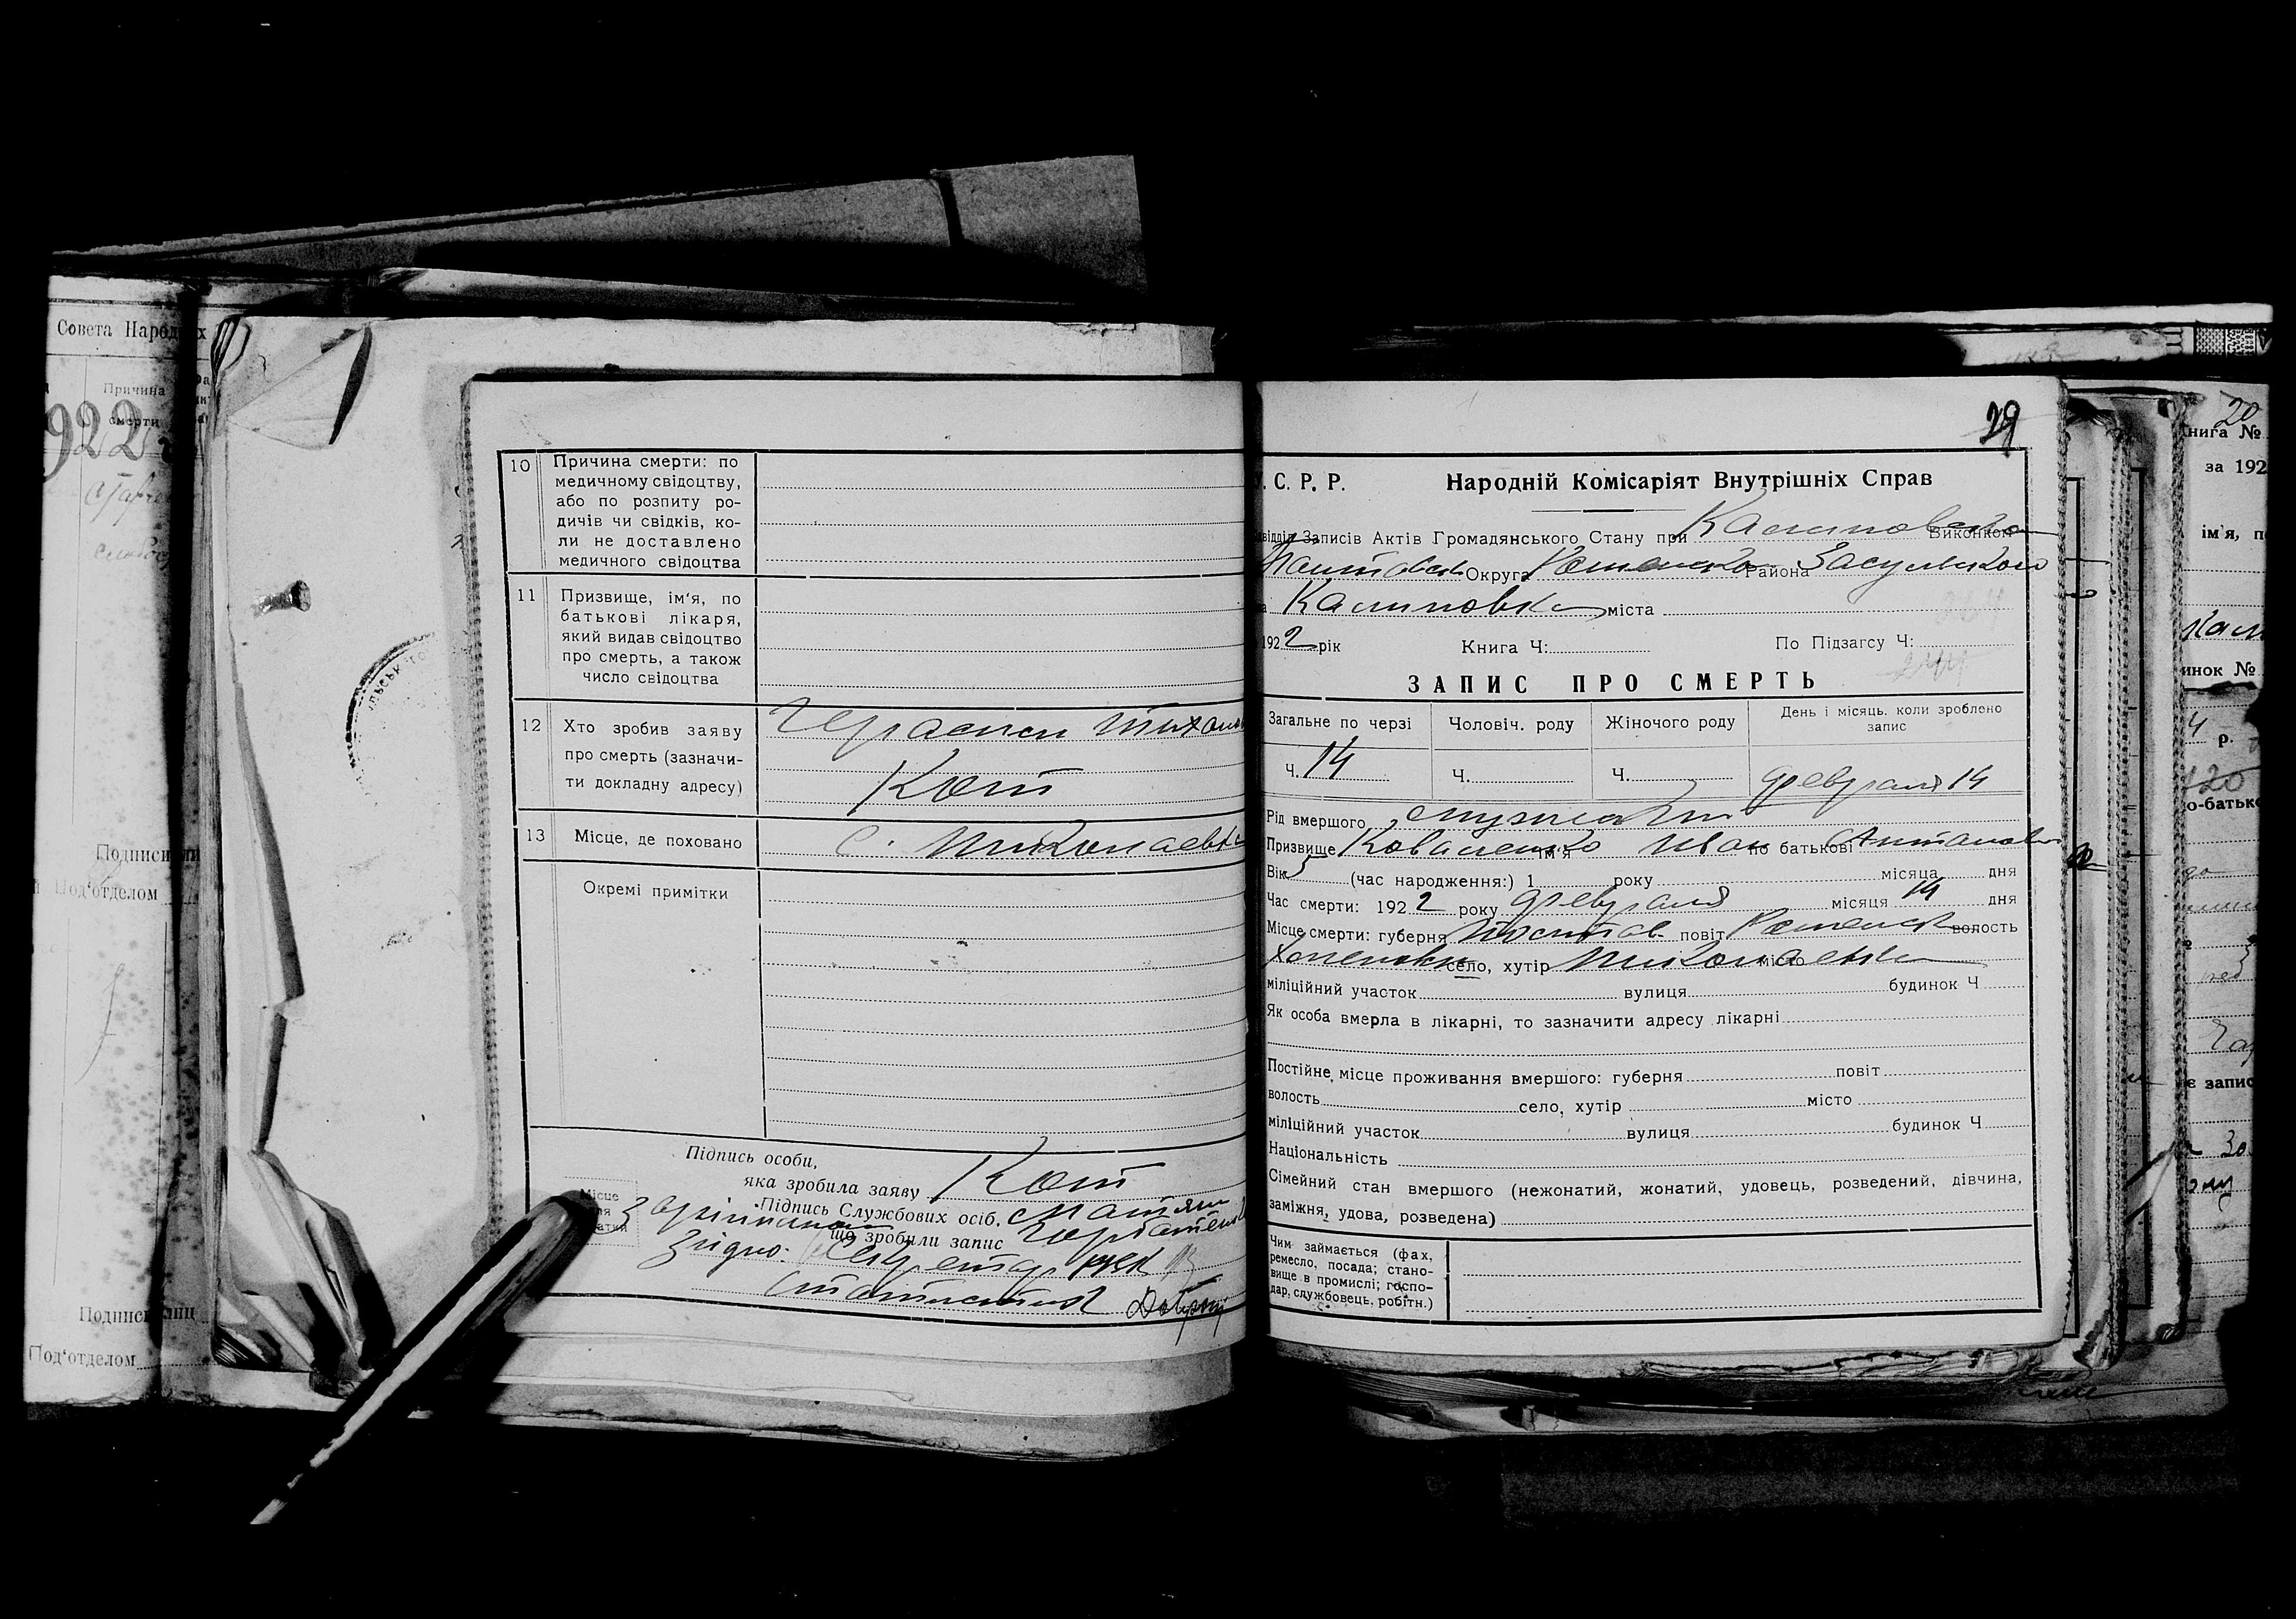 Совета Народных
Причина
смерти
1922
Подписи
Под‘отделом
Подписи лиц
Под‘отделом
10 Причина смерти: по
медичному свідоцтву,
або по розпиту ро-
дичів чи свідків, ко-
ли не доставлено
медичного свідоцтва
11 Призвище, ім‘я, по
батькові лікаря,
який видав свідоцтво
про смерть, а також
число свідоцтва
12 Хто зробив заяву
про смерть (зазначи-
ти докладну адресу)
Герасим Тихонов
Кот
13 Місце, де поховано С. Миколаевка
Окремі примітки
Підпис особи,
яка зробила заяву Кот
Місце
Підпись Службових осіб,
що зробили запис
Згідно: Секретар
статистик
29
С. Р. Р. Народній Комісаріят Внутрішніх Справ
Записів Актів Громадянського Стану при Калиновском Виконком
Полтавск Округа Роменско Района Засульском
Калиновка міста
1922 рік Книга Ч: По Підзагсу Ч:
244
ЗАПИС ПРО СМЕРТЬ
Загальне по черзі Чоловіч. роду Жіночого роду День і місяць. коли зроблено
запис
Ч. 14 Ч. Ч. февраля 14
Рід вмершого мужской
Призвище Коваленко ім‘я Иван по батькові Антонов
Вік 5 (час народження:) 1 року місяца дня
Час смерти: 1922 року февраля місяця 14 дня
Місце смерти: губерня Полтав повіт Роменск волость
село, хутір Миколаевка місто
міліційний участок вулиця будинок Ч
Як особа вмерла в лікарні, то зазначити адресу лікарні
Постійне місце проживання вмершого: губерня повіт
волость село, хутір місто
міліційний участок вулиця будинок Ч
Національність
Сімейний стан вмершого (нежонатий, жонатий, удовець, розведений, дівчина,
заміжня, удова, розведена)
Чим займається (фах,
ремесло, посада; стано-
вище в промислі; госпо-
дар, службовець, робітн.)
20
Книга №
за 192
ім‘я, п
инок №
р.
о-батько
є запис